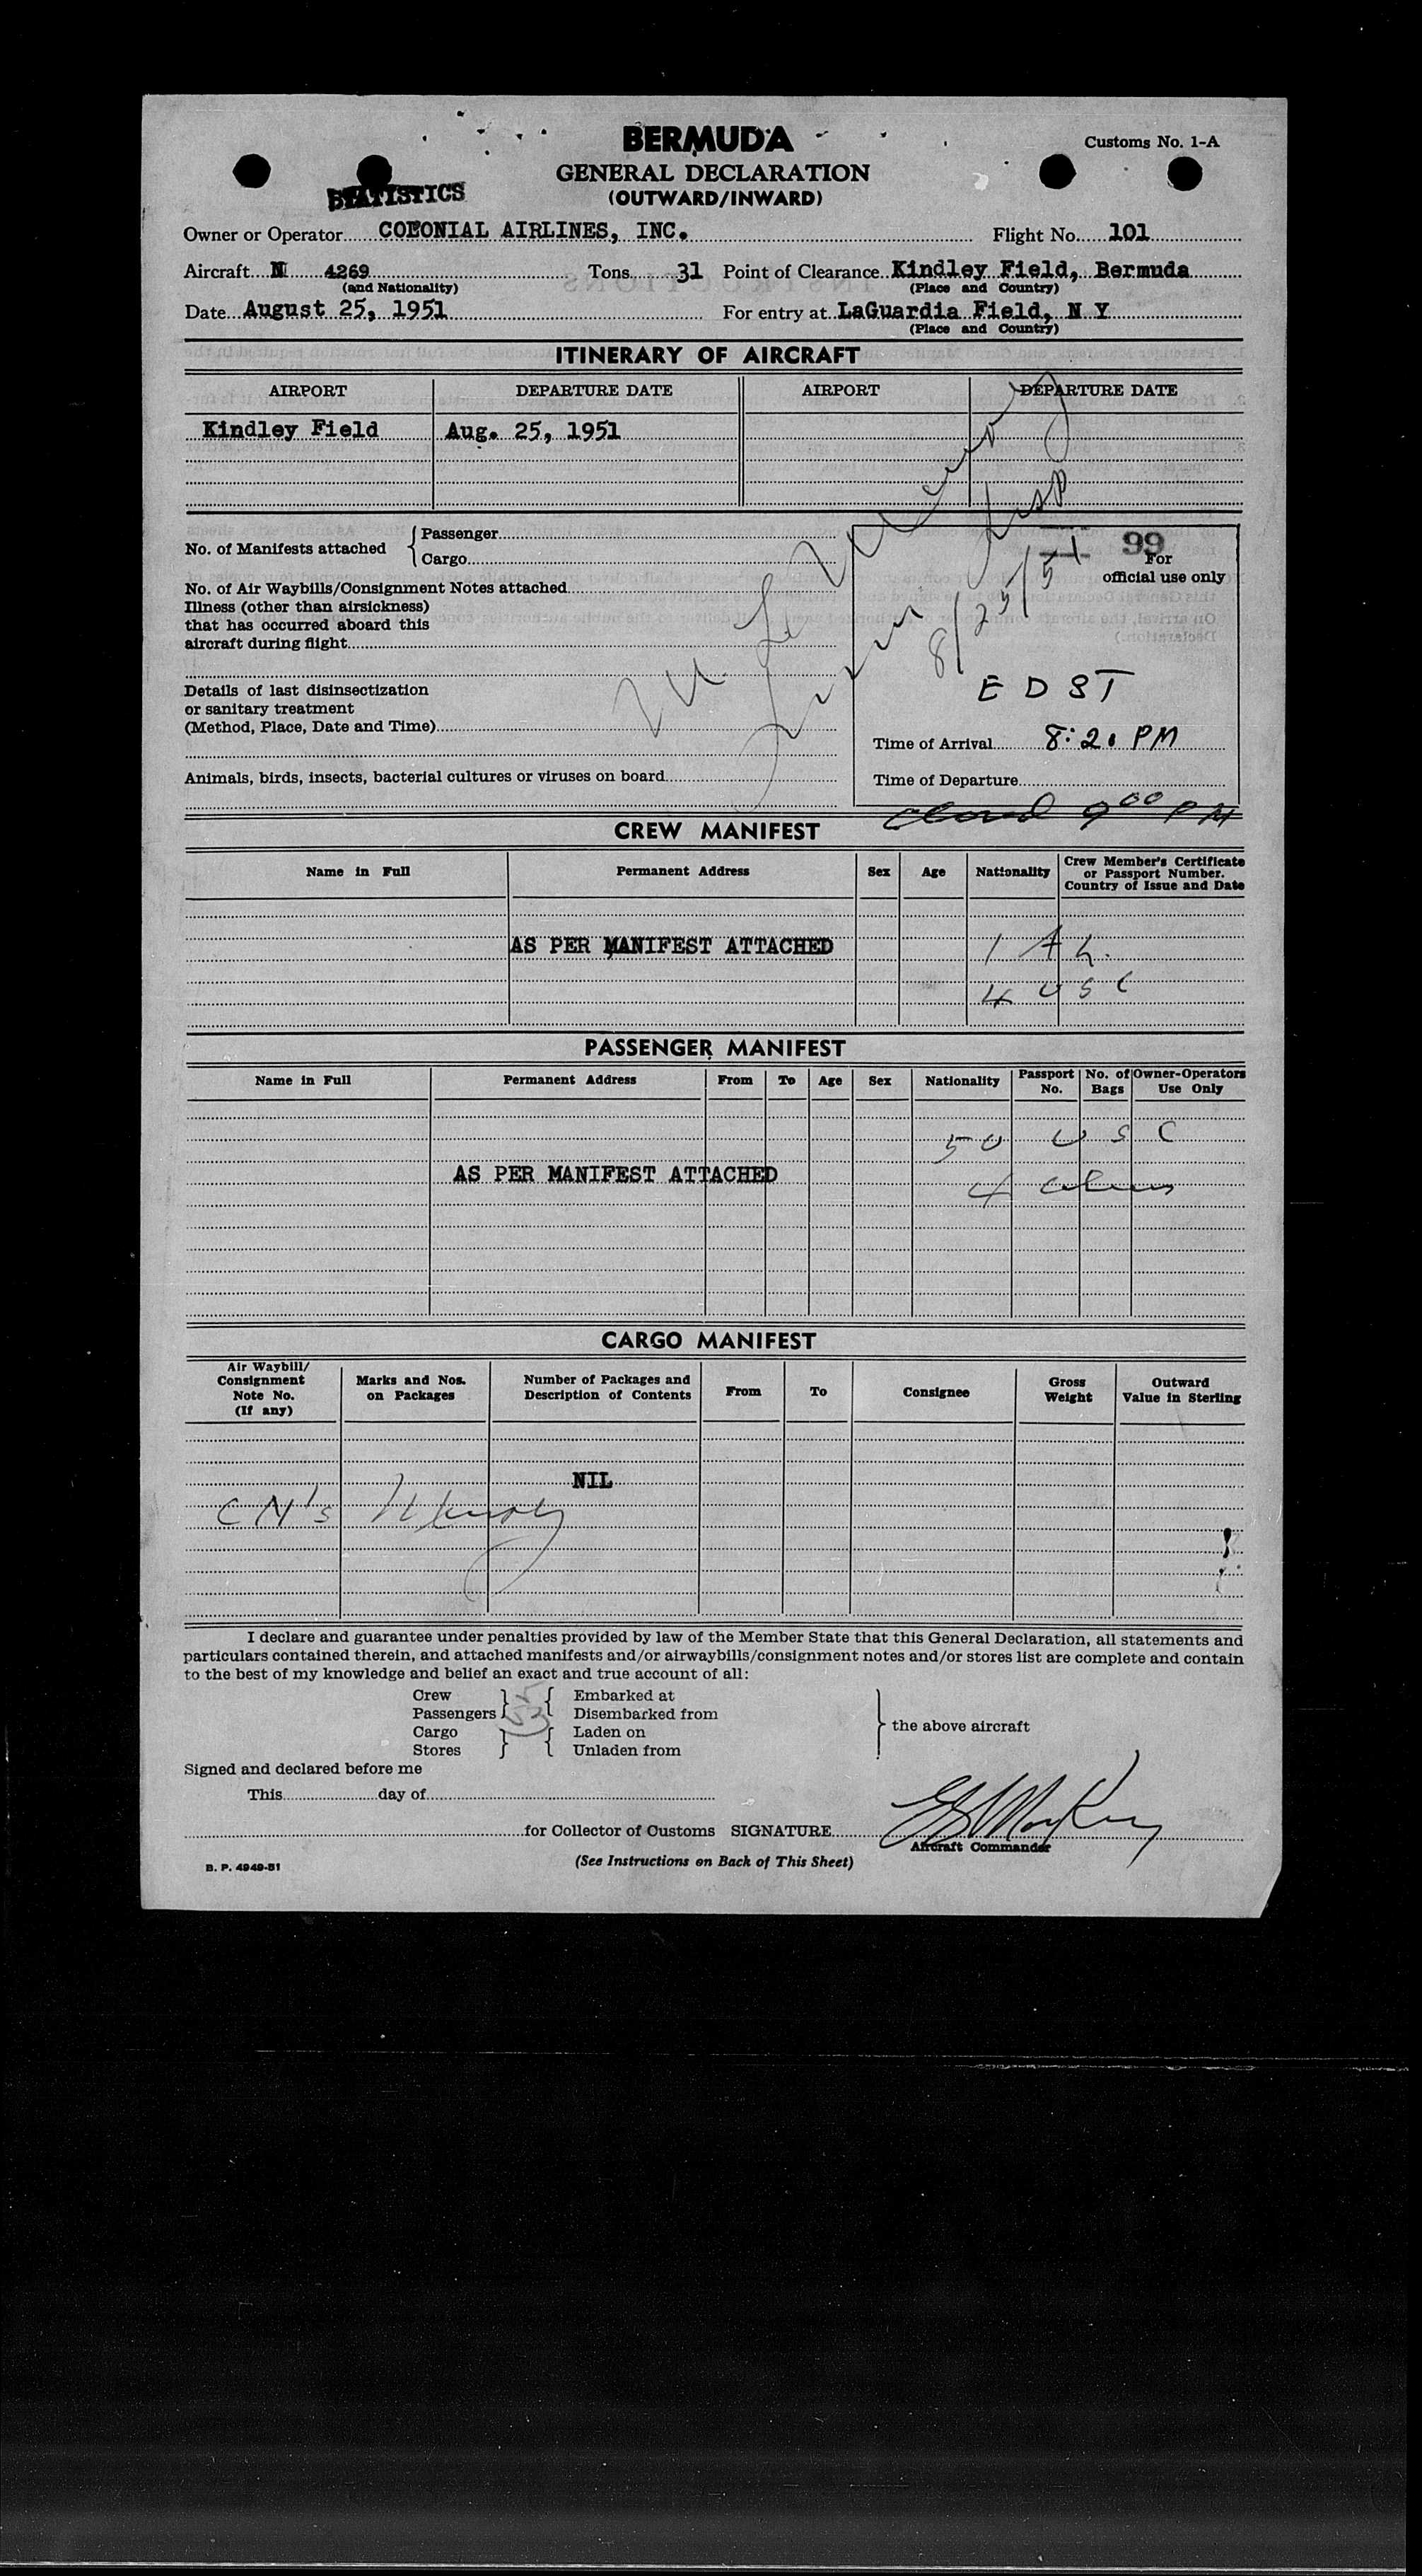 BERMUDA
Customs No. 1-A
GENERAL DECLARATION
STATISTICS
(OUTWARD/INWARD)
Owner or Operator COLONIAL AIRLINES, INC. Flight No. 101
Aircraft N 4269 Tons 31 Point of Clearance Kindley Field, Bermuda
(and Nationality) (Place and Country)
Date August 25, 1951 For entry at LaGuardia Field, N Y
(Place and Country)
ITINERARY OF AIRCRAFT
AIRPORT DEPARTURE DATE AIRPORT DEPARTURE DATE
Kindley Field Aug. 25, 1951
Insp
8/25/51
No. of Manifests attached { Passenger
Cargo
99
For
official use only
No. of Air Waybills/Consignment Notes attached
Illness (other than airsickness)
that has occurred aboard this
aircraft during flight
Details of last disinsectization
or sanitary treatment
(Method, Place, Date and Time)
EDST
Time of Arrival 8:20 PM
Animals, birds, insects, bacterial cultures or viruses on board
Time of Departure
9 00 PM
CREW MANIFEST
Name in Full Permanent Address Sex Age Nationality Crew Member's Certificate or Passport Number. Country of Issue and Date
AS PER MANIFEST ATTACHED
4 USC
PASSENGER MANIFEST
Name in Full Permanent Address From To Age Sex Nationality Passport No. No. of Bags Owner-Operators Use Only
50 USC
AS PER MANIFEST ATTACHED
4 aliens
CARGO MANIFEST
Air Waybill/ Consignment Note No. (If any) Marks and Nos. on Packages Number of Packages and Description of Contents From To Consignee Gross Weight Outward Value in Sterling
NIL
CM's
I declare and guarantee under penalties provided by law of the Member State that this General Declaration, all statements and
particulars contained therein, and attached manifests and/or airwaybills/consignment notes and/or stores list are complete and contain
to the best of my knowledge and belief an exact and true account of all:
Crew Embarked at
Passengers Disembarked from
Cargo Laden on
Stores Unladen from
the above aircraft
Signed and declared before me
This day of
for Collector of Customs SIGNATURE
Aircraft Commander
B. P. 4949-51
(See Instructions on Back of This Sheet)